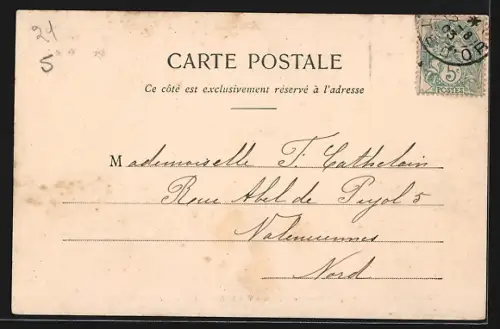 24
5
CARTE POSTALE
Ce côté est exclusivement réservé à l'adresse
5c
POSTES
03
Mademoiselle T. Cathelain
Rue Abel de Pujol 5
Valenciennes
Nord